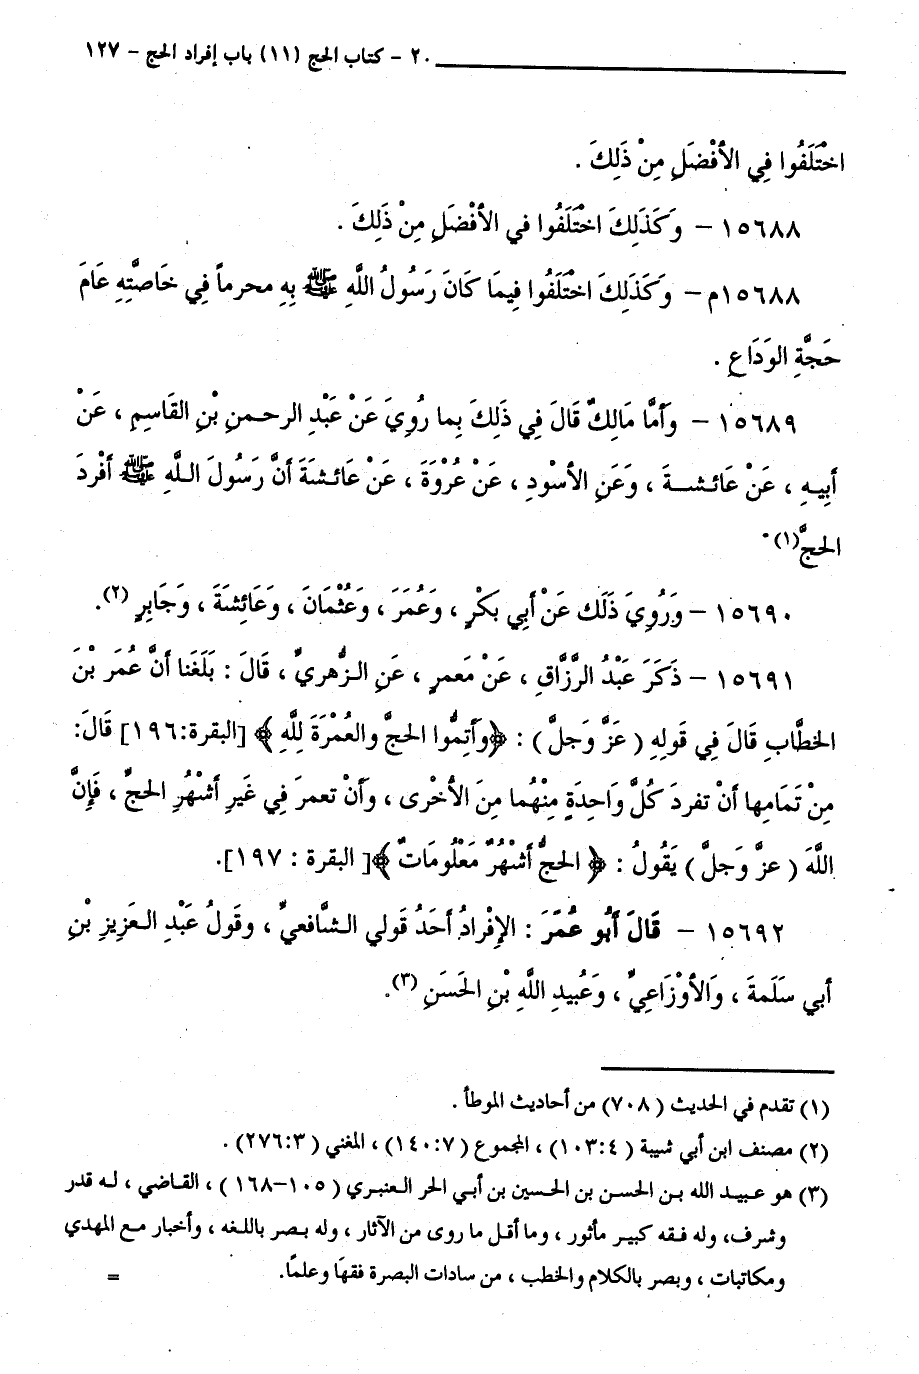 ٢٠ - كتاب الحج (١١) باب إفراد الحج - ١٢٧
اخْتَلَفُوا فِي الأفْضَلِ مِنْ ذَلِكَ .
١٥٦٨٨ - وَكَذَلِكَ اخْتَلَفُوا في الأفْضَلِ مِنْ ذَلِكَ .
١٥٦٨٨م - وَكَذَلِكَ اخْتَلَفُوا فِيمَا كَانَ رَسُولُ اللَّهِ ﷺ بِهِ محرماً فِي خَاصَّتِهِ عَامَ
حَجَّةِ الوَدَاعِ .
١٥٦٨٩ - وَأَمَّا مَالِكٌ قَالَ فِي ذَلِكَ بِما رُوِيَ عَنْ عَبْدِ الرحمنِ بْنِ القَاسِمِ ، عَنْ
أبِيهِ ، عَنْ عَائشةَ ، وَعَنِ الأسْودِ ، عَنْ عُرْوَةَ ، عَنْ عَائشَةَ أنَّ رَسُولَ اللَّهِ ﷺ أفْردَ
الحجَّ(١) .
١٥٦٩٠ - وَرُوِيَ ذَلَك عَنْ أبِي بكْرٍ ، وَعُمَرَ ، وَعُثْمَانَ ، وَعَائِشَةَ ، وَجَابِرٍ (٢).
١٥٦٩١ - ذَكَرَ عَبْدُ الرَّزَّاقِ ، عَنْ مَعمرٍ ، عَنِ الزُّهريِّ ، قَالَ : بَلَغَنا أنَّ عُمَر بْنَ
الخطَّابِ قَالَ فِي قَولِهِ ( عَزَّ وَجلَّ ) : ﴿وَأتِمُّوا الحجَّ والعُمْرَةَ لِلَّهِ ﴾ [البقرة:١٩٦] قَالَ:
مِنْ تَمَامِها أنْ تفردَ كُلَّ وَاحِدَةٍ مِنْهُما مِنَ الأخْرى ، وَأنْ تعمرَ فِي غَيرِ أشْهُرِ الحجِّ ، فَإِنَّ
اللَّهَ ( عزَّ وَجلَّ ) يَقُولُ : ﴿ الحجُّ أشْهُرٌ مَعْلُومَاتٌ ﴾[ البقرة : ١٩٧].
١٥٦٩٢ - قَالَ أَبُو عُمَرَ : الإفْرادُ أحَدُ قَولي الشَّافعيِّ ، وَقولُ عَبْدِ العَزِيزِ بْنِ
أبي سَلَمةَ ، وَالأوْزَاعِيِّ ، وَعُبيدِ اللَّهِ بْنِ الحَسَنِ (٣).
(١) تقدم في الحديث ( ٧٠٨) من أحاديث الموطأ .
(٢) مصنف ابن أبي شيبة ( ١٠٣:٤) ، المجموع ( ١٤٠:٧) ، المغني ( ٢٧٦:٣) .
(٣) هو عبيد الله بن الحسن بن الحسين بن أبي الحر العنبري ( ١٠٥-١٦٨ ) ، القاضي ، له قدر
وشرف، وله فقه كبير مأثور ، وما أقل ما روى من الآثار ، وله بصر باللغه ، وأخبار مع المهدي
ومكاتبات ، وبصر بالكلام والخطب ، من سادات البصرة فقهَا وعلمًا. =